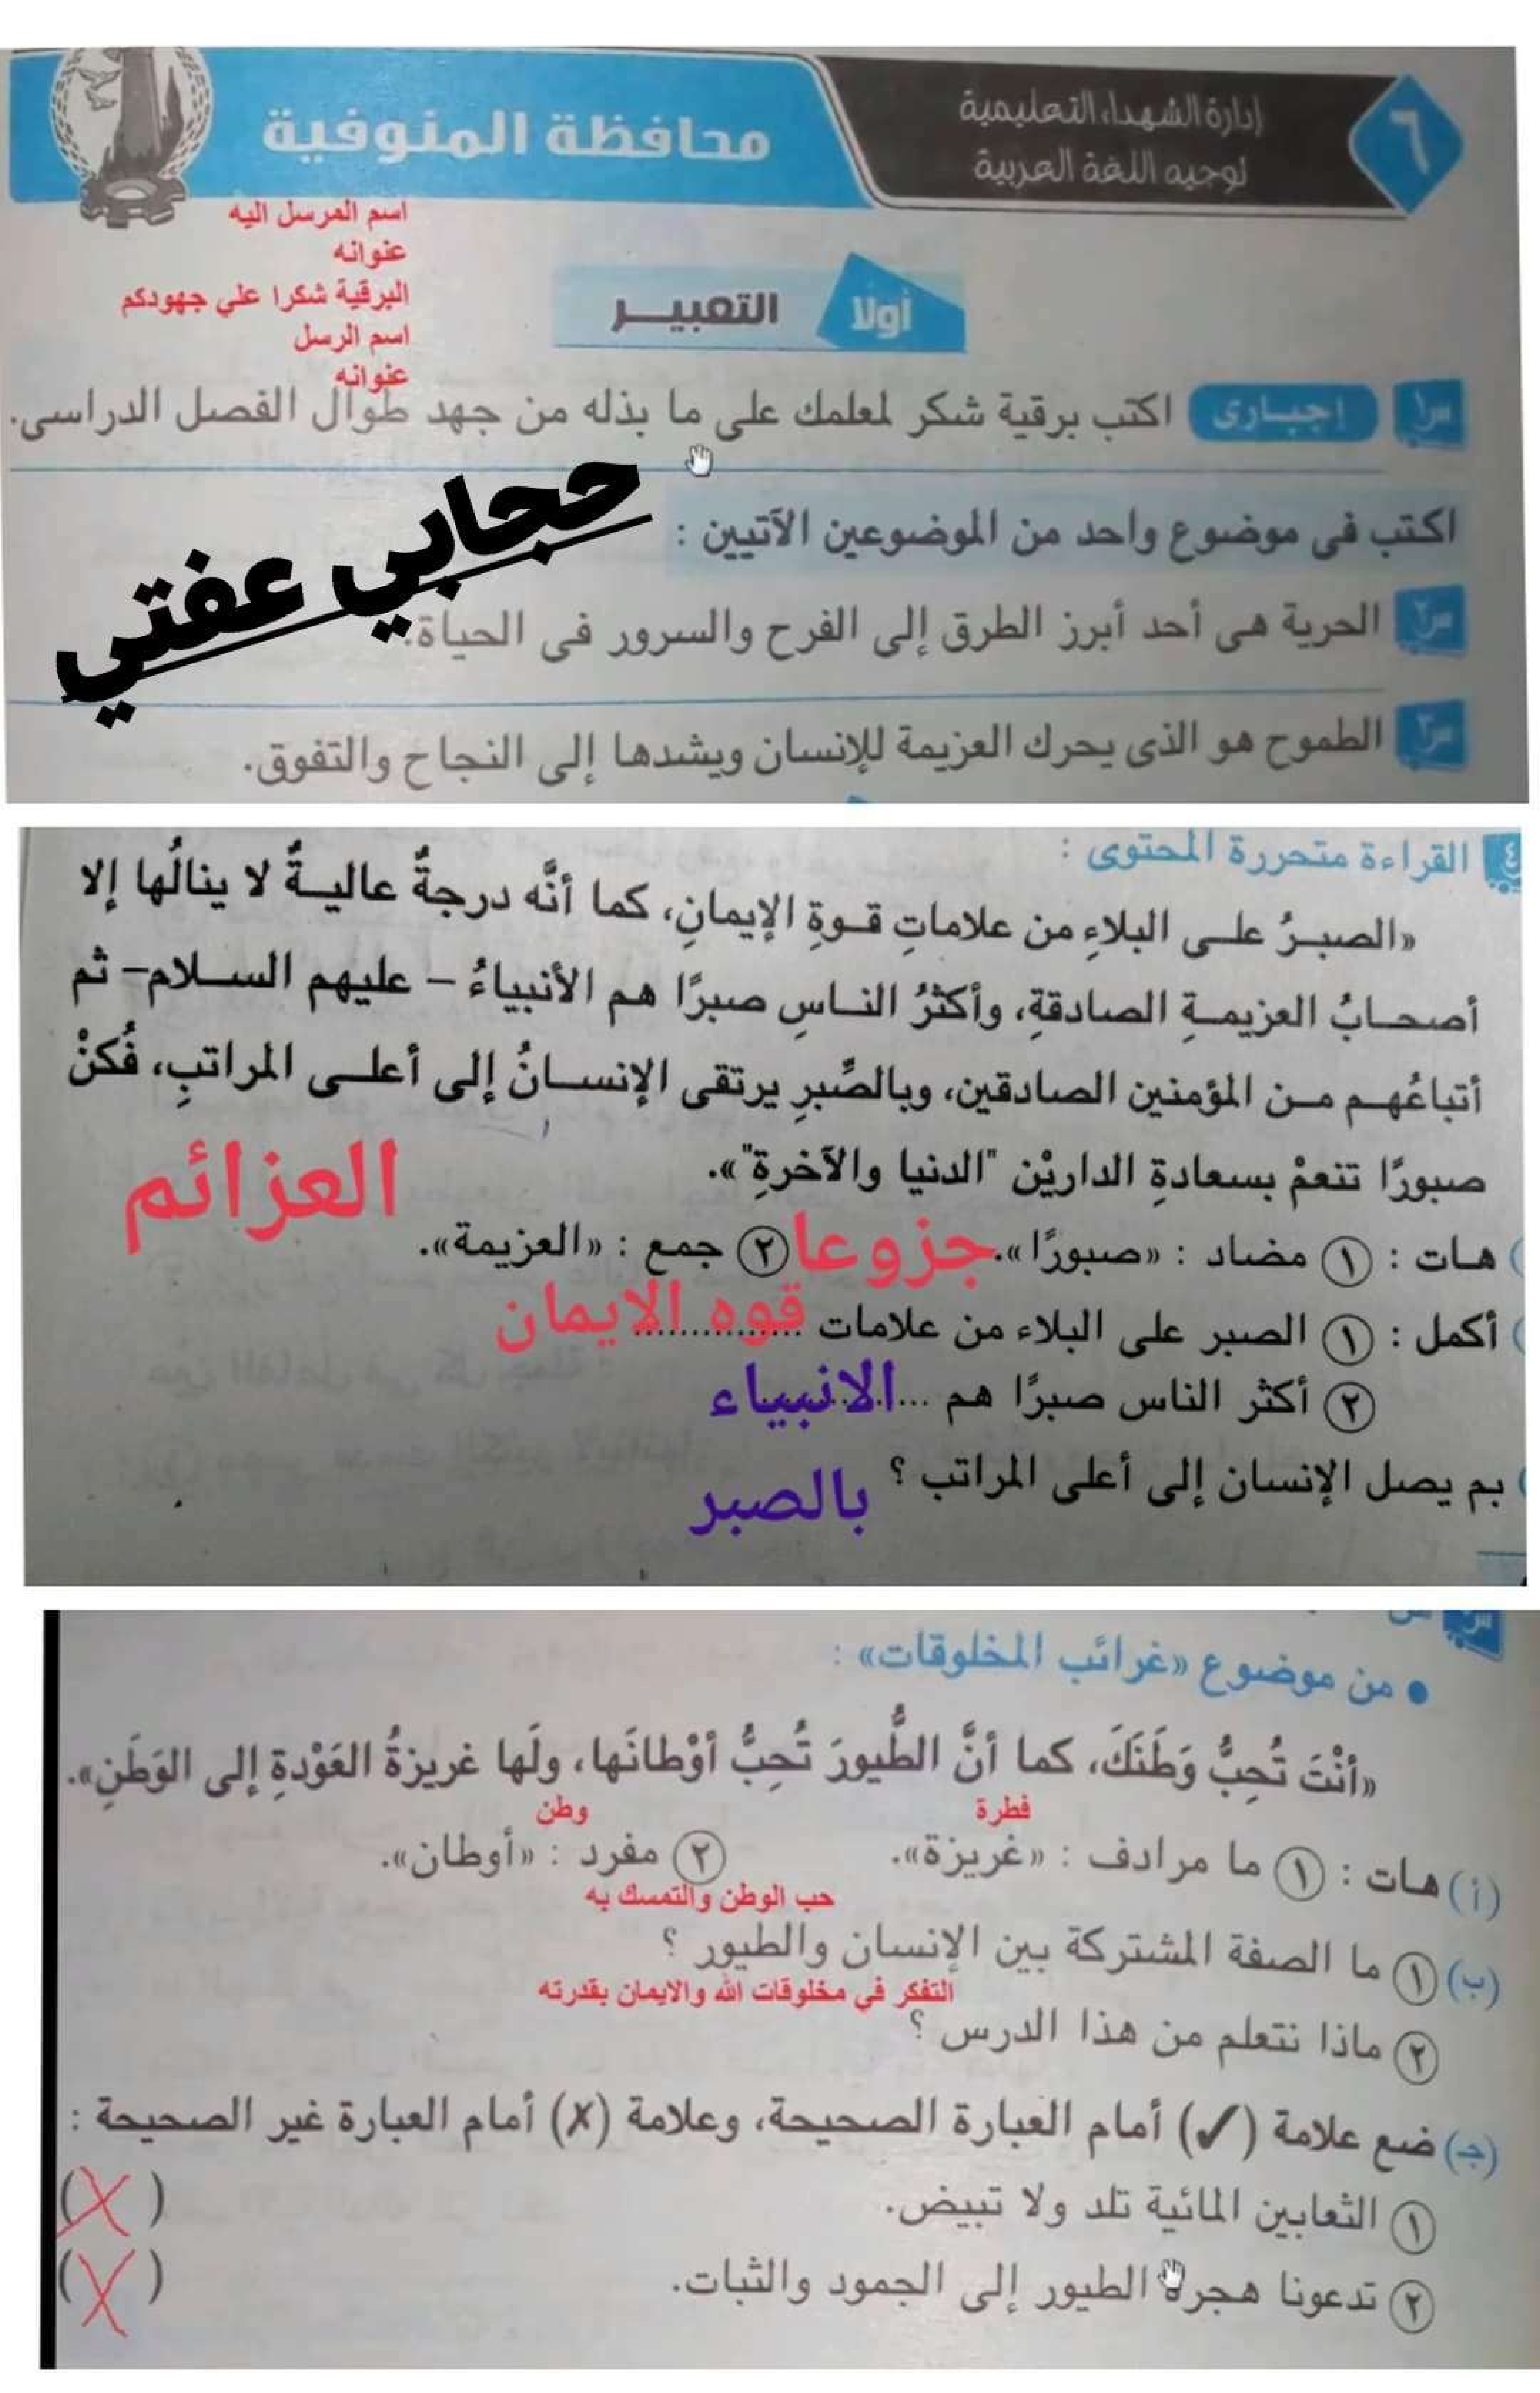 ٦
إدارة الشهداء التعليمية
توجيه اللغة العربية
محافظة المنوفية
اسم المرسل اليه
عنوانه
البرقية شكرا علي جهودكم
اسم الرسل
عنوانه
أولا
التعبيـر
س١ إجبارى اكتب برقية شكر لمعلمك على ما بذله من جهد طوال الفصل الدراسى.
حجابي عفتي
اكتب فى موضوع واحد من الموضوعين الآتيين :
س٢ الحرية هى أحد أبرز الطرق إلى الفرح والسرور فى الحياة.
س٣ الطموح هو الذى يحرك العزيمة للإنسان ويشدها إلى النجاح والتفوق.
٤ القراءة متحررة المحتوى :
«الصبـرُ علـى البلاءِ من علاماتِ قـوةِ الإيمانِ، كما أنَّه درجةٌ عاليـةٌ لا ينالُها إلا
أصحـابُ العزيمـةِ الصادقةِ، وأكثرُ النـاسِ صبرًا هم الأنبياءُ – عليهم السـلام– ثم
أتباعُهـم مـن المؤمنين الصادقين، وبالصَّبرِ يرتقى الإنسـانُ إلى أعلـى المراتبِ، فُكنْ
صبورًا تنعمْ بسعادةِ الداريْن "الدنيا والآخرةِ"».
العزائم
هـات : ١ مضاد : «صبورًا». جزوعا ٢ جمع : «العزيمة».
أكمل : ١ الصبر على البلاء من علامات ............... قوه الايمان
٢ أكثر الناس صبرًا هم ............ الانبياء
بم يصل الإنسان إلى أعلى المراتب ؟ بالصبر
س
• من موضوع «غرائب المخلوقات» :
«أنْتَ تُحِبُّ وَطَنَكَ، كما أنَّ الطُّيورَ تُحِبُّ أوْطانَها، ولَها غريزةُ العَوْدةِ إلى الوَطَنِ».
فطرة وطن
(أ) هـات : ١ ما مرادف : «غريزة». ٢ مفرد : «أوطان».
حب الوطن والتمسك به
(ب) ١ ما الصفة المشتركة بين الإنسان والطيور ؟
التفكر في مخلوقات الله والايمان بقدرته
٢ ماذا نتعلم من هذا الدرس ؟
(جـ) ضع علامة (✓) أمام العبارة الصحيحة، وعلامة (✗) أمام العبارة غير الصحيحة :
١ الثعابين المائية تلد ولا تبيض. (X)
٢ تدعونا هجرة الطيور إلى الجمود والثبات. (X)